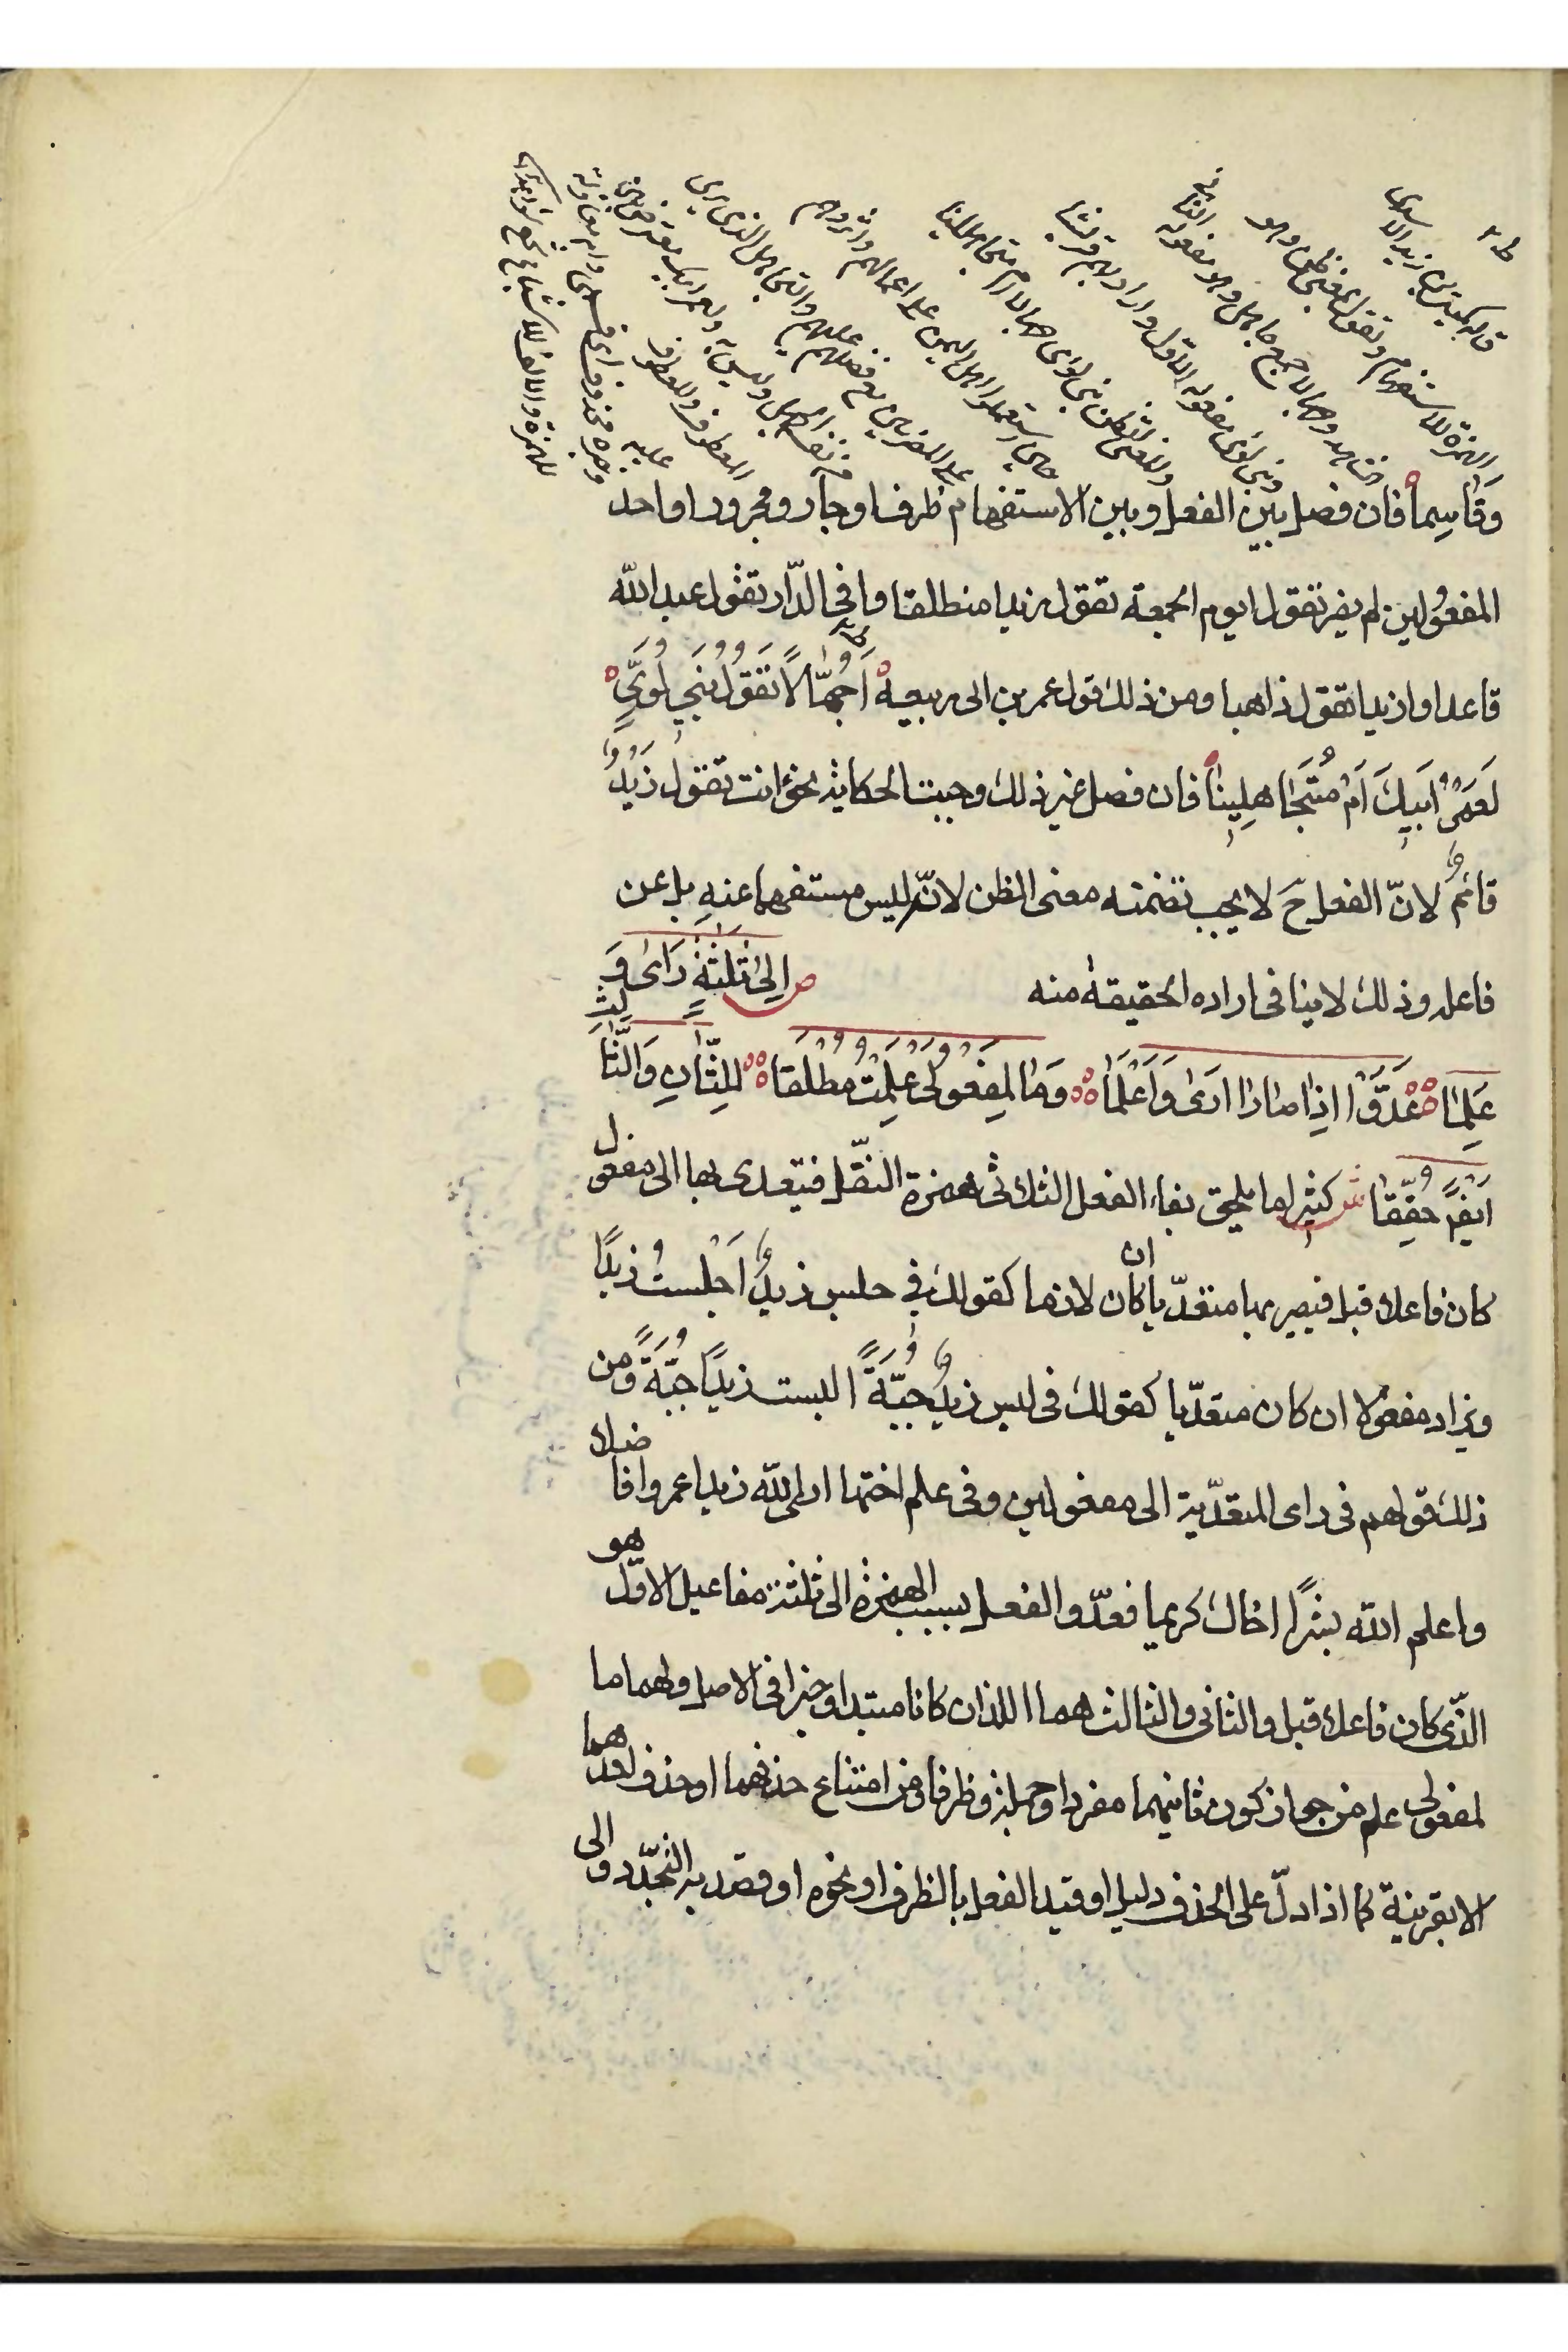 قاله كميت بن زيد الاسدى
الهمزة للاستفهام وتقول بمعنى تظن وهو
شاهد وجهالا جمع جاهل وهو مفعوله الثانى
وبنى لؤى مفعوله الاول واراد بهم قريشا
والمعنى اتظن بنى لؤى جهالا ام متجاهلينا
وَقٰاسِماً فان فصل بين الفعل وبين الاستفهام ظرف او جار ومجرور او احد
المفعولين لم يضر تقول ايوم الجمعة تقول زيدا منطلقا وافى الدّار تقول عبد الله
قاعدا وازيدا تقول ذاهبا ومن ذلك قول عمر بن ابى ربيعه اَجُهّٰالاً تَقُولُ بَنِي لُوَىٍّ
لَعَمْرُ اَبِيكَ اَمْ مُتَجٰاهِلِينٰا فان فصل غير ذلك وجبت الحكاية نحو ءانت تقول زَيْدٌ
قائمٌ لانّ الفعل ح لا يجب تضمنه معنى الظن لانّه ليس مستفهما عنه بل عن
فاعله وذلك لا ينافى اراده الحقيقة منه ص اِلىٰ ثَلٰثَةٍ رَاىٰ وَ
عَلِمٰا عَدَّوْا اِذٰا صٰارٰا اَرىٰ وَاَعْلَمٰا وَمٰا لِمَفْعُولَىْ عَلِمْتُ مُطْلَقٰا لِلثّٰانِ وَالثّٰالِثِ
اَيْضاً حُقِّقٰا ش كثيرا ما يلحق بفاء الفعل الثلاثى همزة النقل فيتعدى بها الى مفعول
كان فاعلا قبل فيصير بها متعدّيا ان كان لازما كقولك فى جلس زيدٌ اَجْلَستُ زيداً
ويزاد مفعولا ان كان متعدّيا كقولك فى لبس زيدٌ جُبَّةً البست زيداً جُبَّةً ومن
ذلك قولهم فى راى المتعدّية الى مفعولين وفى علم اختها ارى الله زيدا عمروا فاضلا
واعلم الله بشراً اخاك كريما فعدّوا الفعل بسبب الهمزة الى ثلثة مفاعيل الاوّل هو
الذّى كان فاعلا قبل والثانى والثالث هما اللذان كانا مبتدا وخبرا فى الاصل ولهما ما
لمفعولى علم من جواز كون ثانيهما مفردا وجملة وظرفا ومن امتناع حذفهما او حذف احدهما
الا بقرينة كما اذا دلّ على الحذف دليل او قيد الفعل بالظرف او نحوه او قصد به التجدّد والى